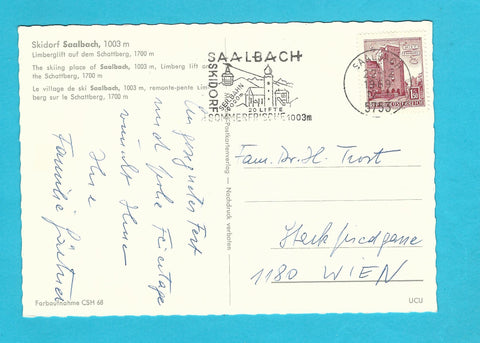 Skidorf Saalbach, 1003 m
Limberglift auf dem Schattberg, 1700 m
The skiing place of Saalbach, 1003 m, Limberg lift on
the Schattberg, 1700 m
Le village de ski Saalbach, 1003 m, remonte-pente Lim-
berg sur le Schattberg, 1700 m
Ein gesegnetes Fest
und frohe Feiertage
wünscht Ihnen
Ihre
Familie
Farbaufnahme CSH 68
Postkartenverlag — Nachdruck verboten
SAALBACH
SKIDORF
SEILBAHN
2020m
20 LIFTE
SOMMERFRISCHE 1003m
SAALBACH
5753
Fam. Dr. H. Trost
1180 WIEN
UCU